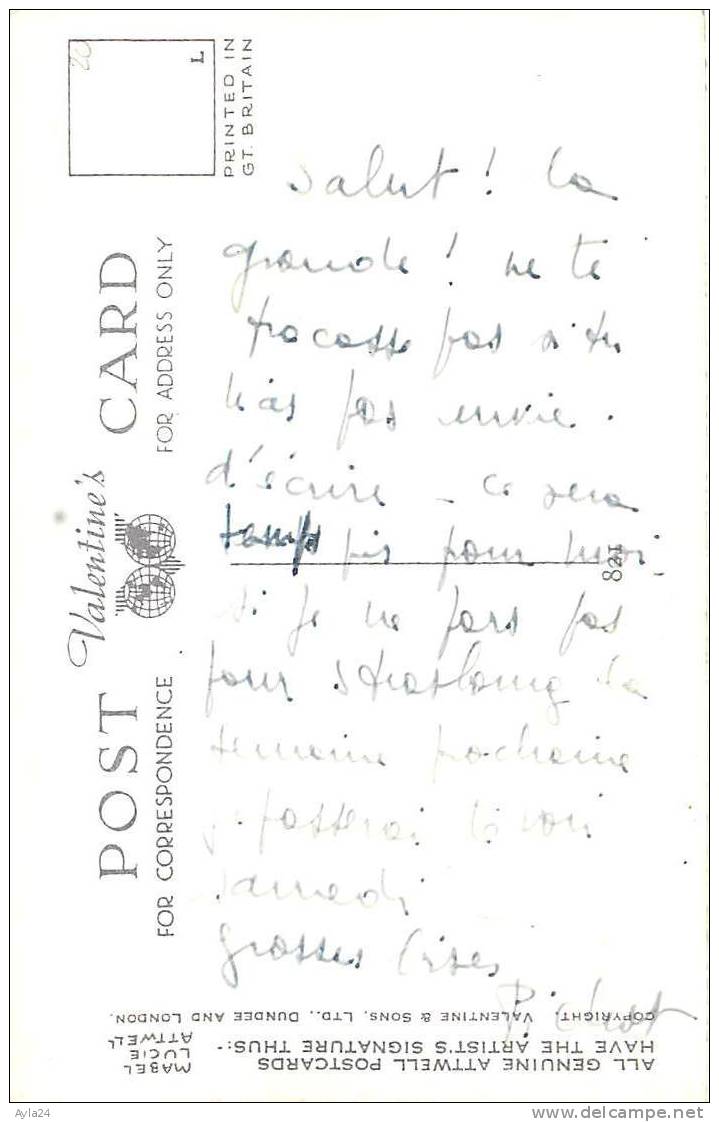 PRINTED IN
GT. BRITAIN
L
20
POST Valentine's CARD
FOR CORRESPONDENCE
FOR ADDRESS ONLY
821
Salut! la
grande! ne te
tracasse pas si tu
n'as pas envie
d'écrire - ce sera
tempt pis pour moi
si je ne pars pas
pour Strasbourg la
semaine prochaine
je passerai te voir
samedi
grosses bises
ALL GENUINE ATTWELL POSTCARDS
HAVE THE ARTIST'S SIGNATURE THUS:-
MABEL
LUCIE
ATTWELL
COPYRIGHT. VALENTINE & SONS, LTD., DUNDEE AND LONDON.
Ayla24
www.delcampe.net